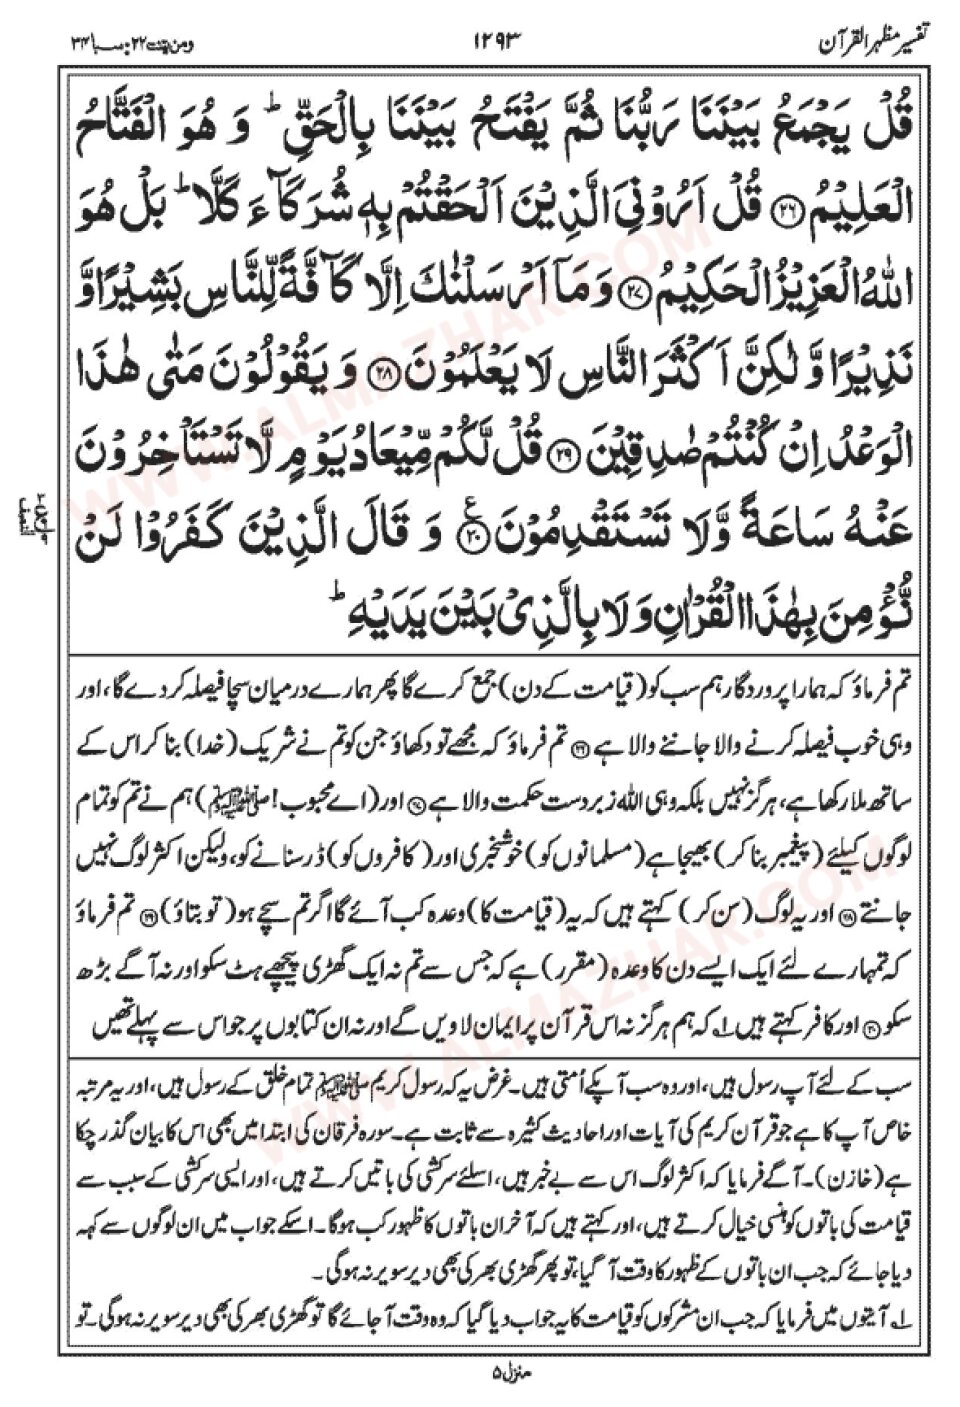 تفسیر مظہر القرآن
۱۲۹۳
ومن یقنت ۲۲: سبا ۳۴
قُلْ يَجْمَعُ بَيْنَنَا رَبُّنَا ثُمَّ يَفْتَحُ بَيْنَنَا بِالْحَقِّ ؕ وَ هُوَ الْفَتَّاحُ
الْعَلِيْمُ ﴿۲۶﴾ قُلْ اَرُوْنِيَ الَّذِيْنَ اَلْحَقْتُمْ بِهٖ شُرَكَآءَ كَلَّا ؕ بَلْ هُوَ
اللّٰهُ الْعَزِيْزُ الْحَكِيْمُ ﴿۲۷﴾ وَ مَاۤ اَرْسَلْنٰكَ اِلَّا كَآفَّةً لِّلنَّاسِ بَشِيْرًا وَّ
نَذِيْرًا وَّ لٰكِنَّ اَكْثَرَ النَّاسِ لَا يَعْلَمُوْنَ ﴿۲۸﴾ وَ يَقُوْلُوْنَ مَتٰى هٰذَا
الْوَعْدُ اِنْ كُنْتُمْ صٰدِقِيْنَ ﴿۲۹﴾ قُلْ لَّكُمْ مِّيْعَادُ يَوْمٍ لَّا تَسْتَاْخِرُوْنَ
عَنْهُ سَاعَةً وَّ لَا تَسْتَقْدِمُوْنَ ﴿۳۰﴾ ع وَ قَالَ الَّذِيْنَ كَفَرُوْا لَنْ
نُّؤْمِنَ بِهٰذَا الْقُرْاٰنِ وَ لَا بِالَّذِيْ بَيْنَ يَدَيْهِ ؕ
تم فرماؤ کہ ہمارا پروردگار ہم سب کو (قیامت کے دن) جمع کرے گا پھر ہمارے درمیان سچا فیصلہ کر دے گا، اور
وہی خوب فیصلہ کرنے والا جاننے والا ہے ﴿۲۶﴾ تم فرماؤ کہ مجھے تو دکھاؤ جن کو تم نے شریک (خدا) بنا کر اس کے
ساتھ ملا رکھا ہے، ہرگز نہیں بلکہ وہی اللہ زبردست حکمت والا ہے ﴿۲۷﴾ اور (اے محبوب! ﷺ) ہم نے تم کو تمام
لوگوں کیلئے (پیغمبر بنا کر) بھیجا ہے (مسلمانوں کو) خوشخبری اور (کافروں کو) ڈر سنانے کو، ولیکن اکثر لوگ نہیں
جانتے ﴿۲۸﴾ اور یہ لوگ (سن کر) کہتے ہیں کہ یہ (قیامت کا) وعدہ کب آئے گا اگر تم سچے ہو (تو بتاؤ) ﴿۲۹﴾ تم فرماؤ
کہ تمہارے لئے ایک ایسے دن کا وعدہ (مقرر) ہے کہ جس سے تم نہ ایک گھڑی پیچھے ہٹ سکو اور نہ آگے بڑھ
سکو ﴿۳۰﴾ اور کافر کہتے ہیں ۱؎ کہ ہم ہرگز نہ اس قرآن پر ایمان لاویں گے اور نہ ان کتابوں پر جو اس سے پہلے تھیں
سب کے لئے آپ رسول ہیں، اور وہ سب آپ کے اُمتی ہیں۔ غرض یہ کہ رسول کریم ﷺ تمام خلق کے رسول ہیں، اور یہ مرتبہ
خاص آپ کا ہے جو قرآن کریم کی آیات اور احادیث کثیرہ سے ثابت ہے۔ سورہ فرقان کی ابتدا میں بھی اس کا بیان گذر چکا
ہے (خازن)۔ آگے فرمایا کہ اکثر لوگ اس سے بے خبر ہیں، اسلئے سرکشی کی باتیں کرتے ہیں، اور ایسی سرکشی کے سبب سے
قیامت کی باتوں کو ہنسی خیال کرتے ہیں، اور کہتے ہیں کہ آخر ان باتوں کا ظہور کب ہوگا۔ اسکے جواب میں ان لوگوں سے کہہ
دیا جائے کہ جب ان باتوں کے ظہور کا وقت آ گیا، تو پھر گھڑی بھر کی بھی دیر سویر نہ ہوگی۔
۱؎ آیتوں میں فرمایا کہ جب ان مشرکوں کو قیامت کا یہ جواب دیا گیا کہ وہ وقت آ جائے گا تو گھڑی بھر کی بھی دیر سویر نہ ہوگی۔ تو
منزل ۵
WWW.ALMAZHAR.COM
WWW.ALMAZHAR.COM